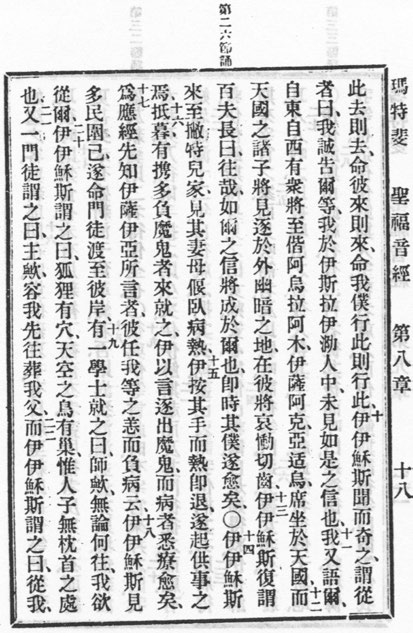 第二六節誦
瑪特斐 聖福音經 第八章 十八
此去則去、命彼來則來、命我僕行此則行此、十伊伊穌斯聞而奇之、謂從
者曰、我誠告爾等、我於伊斯拉伊泐人中、未見如是之信也、十一我又語爾、
自東自西有衆將至、偕阿烏拉阿木伊薩阿克亞适烏席坐於天國、十二而
天國之諸子將見逐於外幽暗之地、在彼將哀慟切齒、十三伊伊穌斯復謂
百夫長曰、往哉、如爾之信、將成於爾也、卽時其僕遂愈矣、〇十四伊伊穌斯
來至撇特兒家、見其妻母偃臥病熱、十五伊按其手而熱卽退、遂起供事之
焉、十六抵暮有携多負魔鬼者來就之、伊以言逐出魔鬼、而病者悉療愈矣、
十七爲應經先知伊薩伊亞所言者、彼任我等之恙而負病云、十八伊伊穌斯見
多民圍己、遂命門徒渡至彼岸、十九有一學士就之曰、師歟、無論何往我欲
從爾、二十伊伊穌斯謂之曰、狐狸有穴、天空之鳥有巢、惟人子無枕首之處
也、二一又一門徒謂之曰、主歟、容我先往葬我父、二二而伊伊穌斯謂之曰、從我、